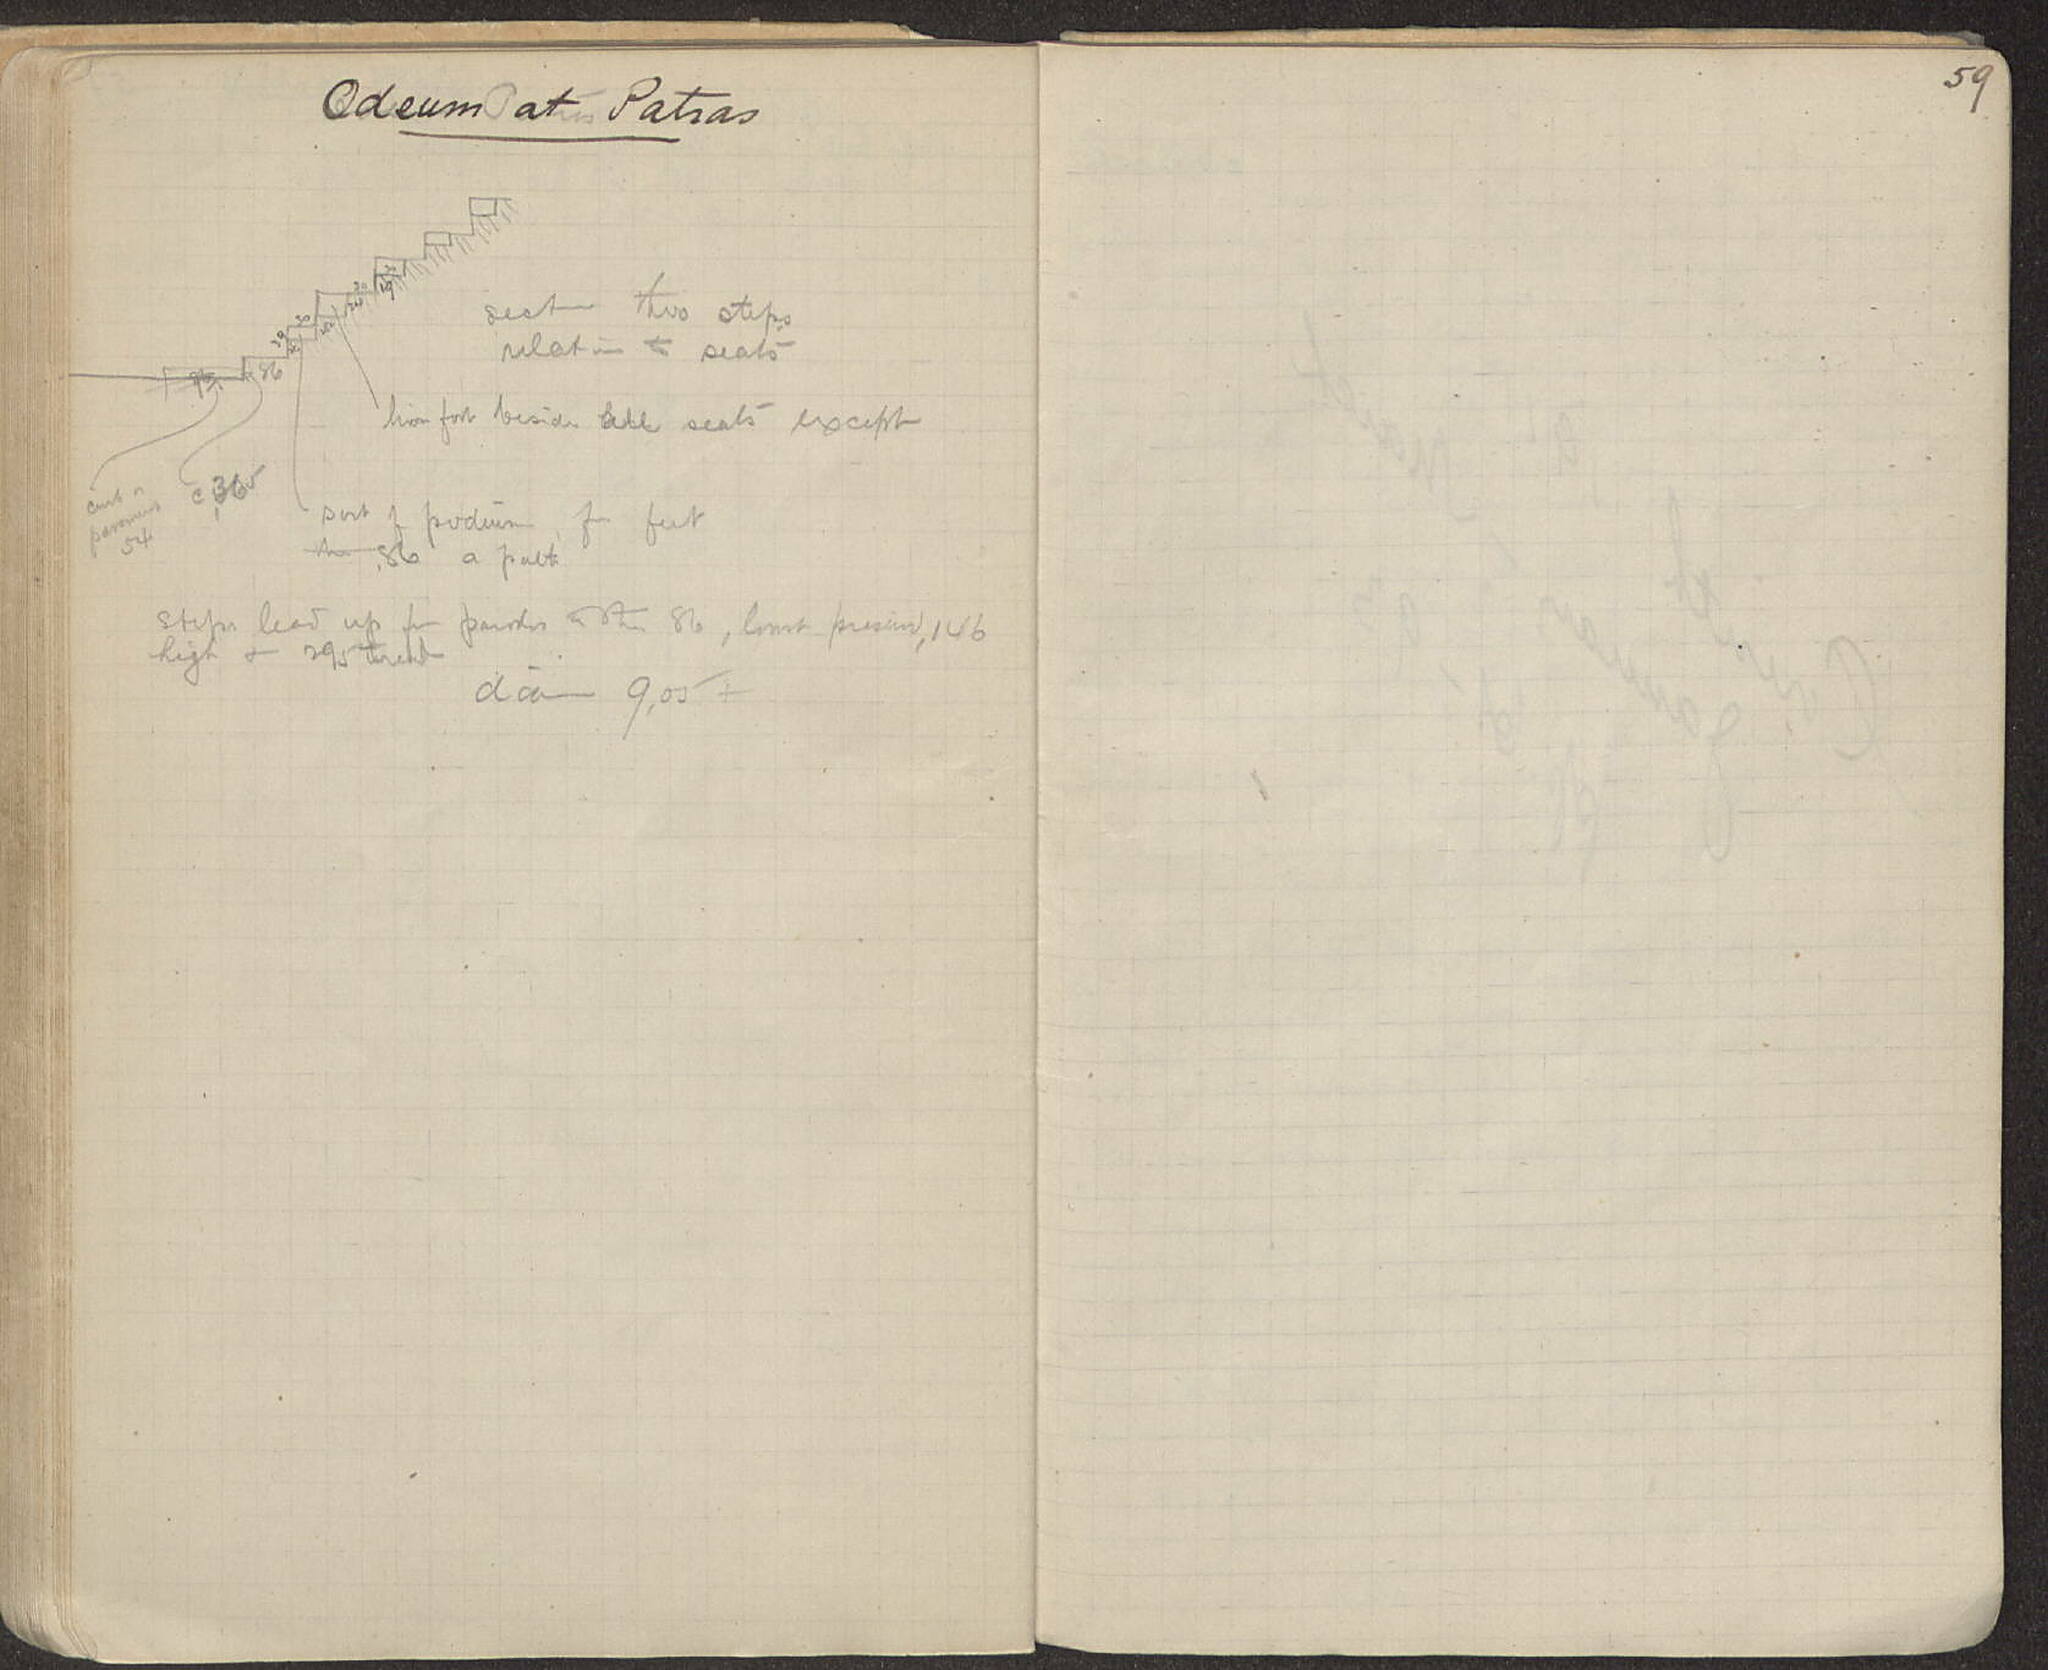 Odeum at Patras
59
section thro steps
relation to seats
lion foot beside all seats except
curb or
pavement
54
c ,365
86
sort of podium for feet
the ,86 a path
steps lead up fr parodos to the 86, lowest preserved ,146
high + 295 tread
diam 9,05 ±